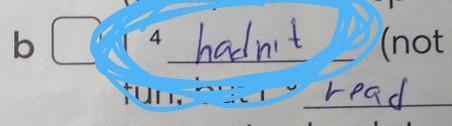 b 4 hadn't (not
fun, but I read